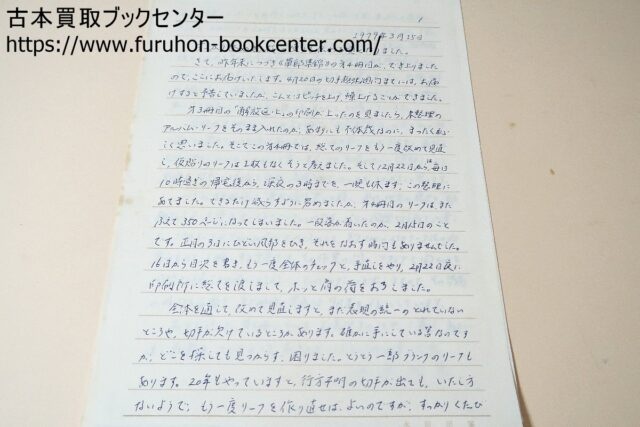 古本買取ブックセンター
https://www.furuhon-bookcenter.com/
1
1979年3月25日
ました。
さて、昨年末につづき《　》の第4冊目が、でき上りました
ので、ここにお届けいたします。4月20日の切手趣味週間までには、お届
けすると予告していましたが、こんどはピッチを上げ、繰上げることができました。
第3冊目の「解放区・上」の印刷が上ったのを見ましたら、未整理の
アルバム・リーフをそのまま入れたのが、あまりにも不体裁なのに、まったくはずか
しく思いました。そこでこの第4冊では、総てのリーフをもう一度改めて見直
し、仮貼りのリーフは1枚もなくそうと考えました。そして12月22日から、毎日
10時過ぎの帰宅後から、深夜の3時までを、一晩も休まず、この整理に
あてました。できるだけ減らすように努めましたが、第4冊目のリーフは、また
350ページになってしまいました。一段落が着いたのが、2月15日のこと
です。正月の3日にひどい風邪をひき、それをなおす時間もありませんでした。
16日から目次を書き、もう一度全体のチェックと、手直しをやり、2月22日夜に
印刷所に総てを渡しまして、ホッと肩の荷をおろしました。
全体を通して、改めて見直しますと、また表現の統一のとれていない
ところや、切手が欠けているところがあります。確かに手にしている筈なのです
が、どこを探しても見つからず、困りました。とうとう一部ブランクのリーフも
あります。20年もやっていますと、行方不明の切手が出ても、いたし方
ないようで、もう一度リーフを作り直せば、よいのですが、すっかりくたび